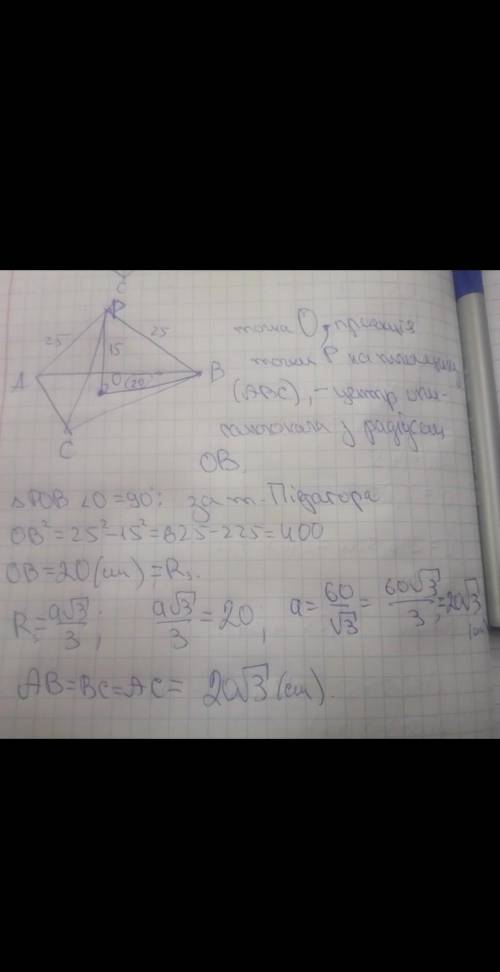 C
P
25
25
15
A
O (20)
B
C
точка O, проекція
точки P на площину
(ABC), – центр опи-
з радіусом
OB.
△POB ∠O = 90°: за т. Піфагора
OB² = 25² - 15² = 625 - 225 = 400
OB = 20 (см) = R.
R = a√3/3; a√3/3 = 20, a = 60/√3 = 60√3/3 = 20√3
(см)
AB = BC = AC = 20√3 (см).